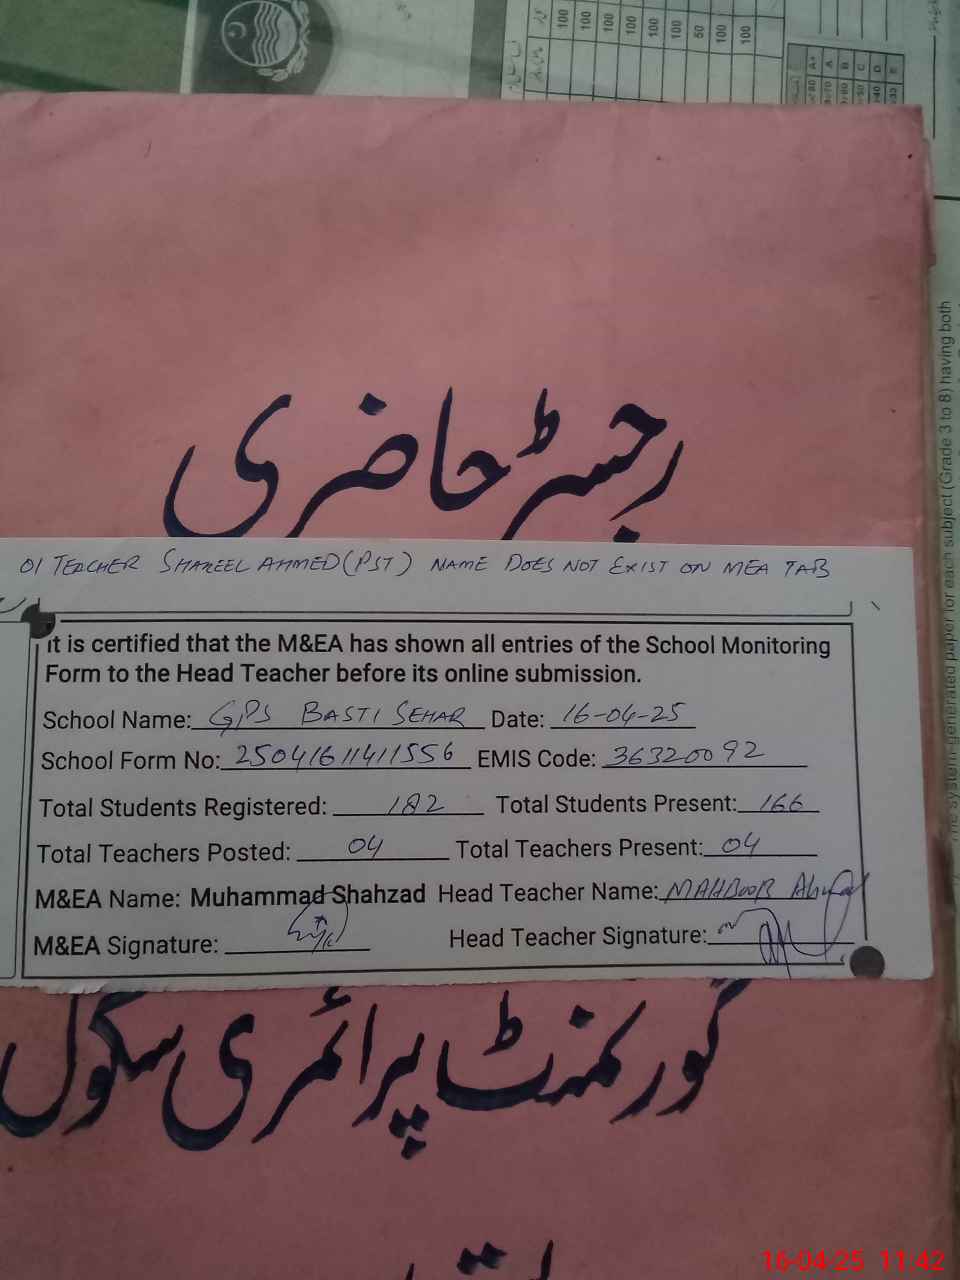 100 100 100 100 100 100 50 100 100
A+ A B C D E
رجسٹر حاضری
01 TEACHER SHAREEL AHMED (PST) NAME DOES NOT EXIST ON MEA TAB
it is certified that the M&EA has shown all entries of the School Monitoring
Form to the Head Teacher before its online submission.
School Name: GPS BASTI SEHAR Date: 16-04-25
School Form No: 25041611411556 EMIS Code: 36320092
Total Students Registered: 182 Total Students Present: 166
Total Teachers Posted: 04 Total Teachers Present: 04
M&EA Name: Muhammad Shahzad Head Teacher Name: MAHBOOB Ahmad
M&EA Signature: Head Teacher Signature:
گورنمنٹ پرائمری سکول
The system-generated paper for each subject (Grade 3 to 8) having both
16-04-25 11:42